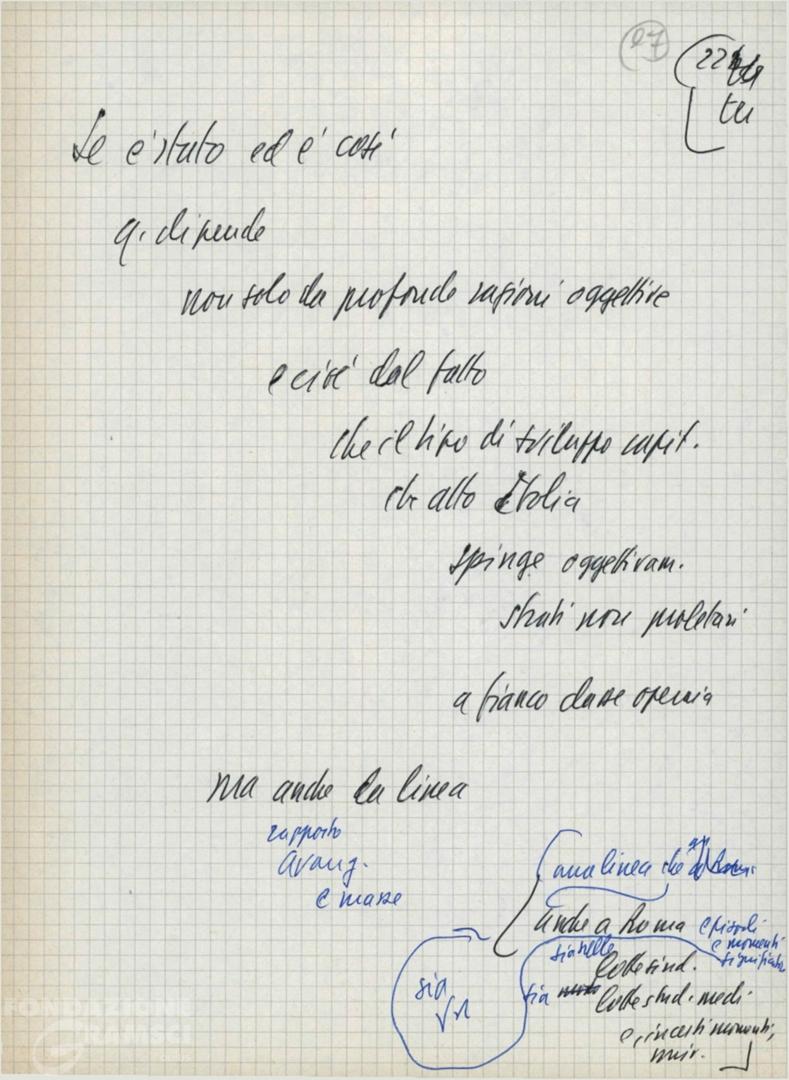 27
22
tu
Se è stato ed è così
q. dipende
non solo da profonde ragioni oggettive
e cioè dal fatto
che il tipo di sviluppo capit.
in atto Italia
spinge oggettivam.
strati non proletari
a fianco classe operaia
ma anche da linea
rapporto
avang.
e masse
una linea che
anche a Roma episodi
e momenti
significativi
sia nelle
lotte sind.
sia lotte stud. medi
e, in certi momenti,
univ.
sia
FONDAZIONE
GRAMSCI